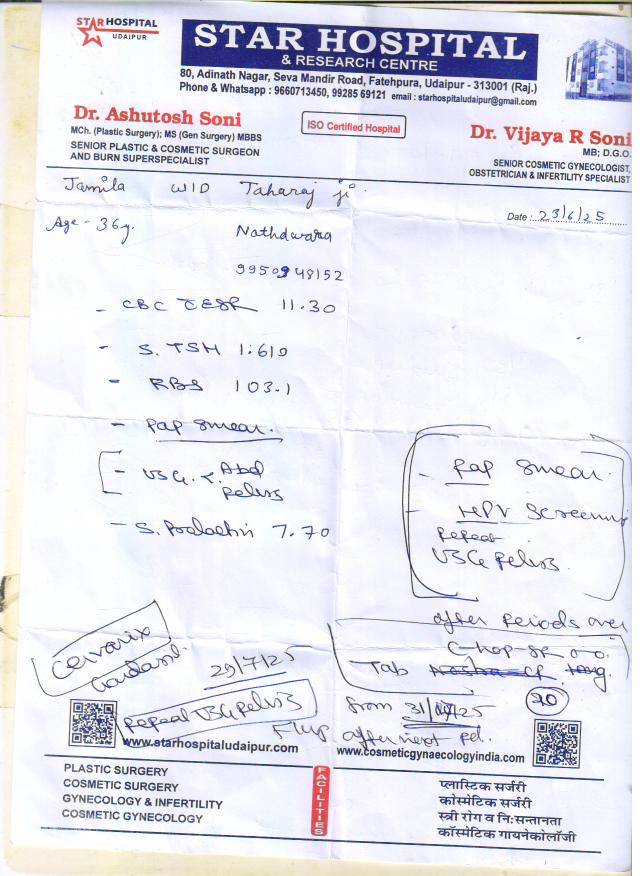 STAR HOSPITAL
UDAIPUR
STAR HOSPITAL
& RESEARCH CENTRE
80, Adinath Nagar, Seva Mandir Road, Fatehpura, Udaipur - 313001 (Raj.)
Phone & Whatsapp : 9660713450, 99285 69121 email : starhospitaludaipur@gmail.com
Dr. Ashutosh Soni
MCh. (Plastic Surgery); MS (Gen Surgery) MBBS
SENIOR PLASTIC & COSMETIC SURGEON
AND BURN SUPERSPECIALIST
ISO Certified Hospital
Dr. Vijaya R Soni
MB; D.G.O.
SENIOR COSMETIC GYNECOLOGIST,
OBSTETRICIAN & INFERTILITY SPECIALIST
Jamila W/O Taharaj ji
Date : 23/6/25
Age - 36y.
Nathdwara
9950948152
- CBC ESR 11.30
- S. TSH 1.619
- RBS 103.1
- Pap Smear.
- USG. Abd
Pelvis
- S. Prolactin 7.70
- Pap Smear.
- HPV Screening
repeat
USG Pelvis.
after Periods over
Cervarix
29/7/25
Tab
from 31/ /25
20
Repeat USG Pelvis
after next pd.
www.starhospitaludaipur.com
www.cosmeticgynaecologyindia.com
PLASTIC SURGERY
COSMETIC SURGERY
GYNECOLOGY & INFERTILITY
COSMETIC GYNECOLOGY
FACILITIES
प्लास्टिक सर्जरी
कोस्मेटिक सर्जरी
स्त्री रोग व निःसन्तानता
कॉस्मेटिक गायनेकोलॉजी